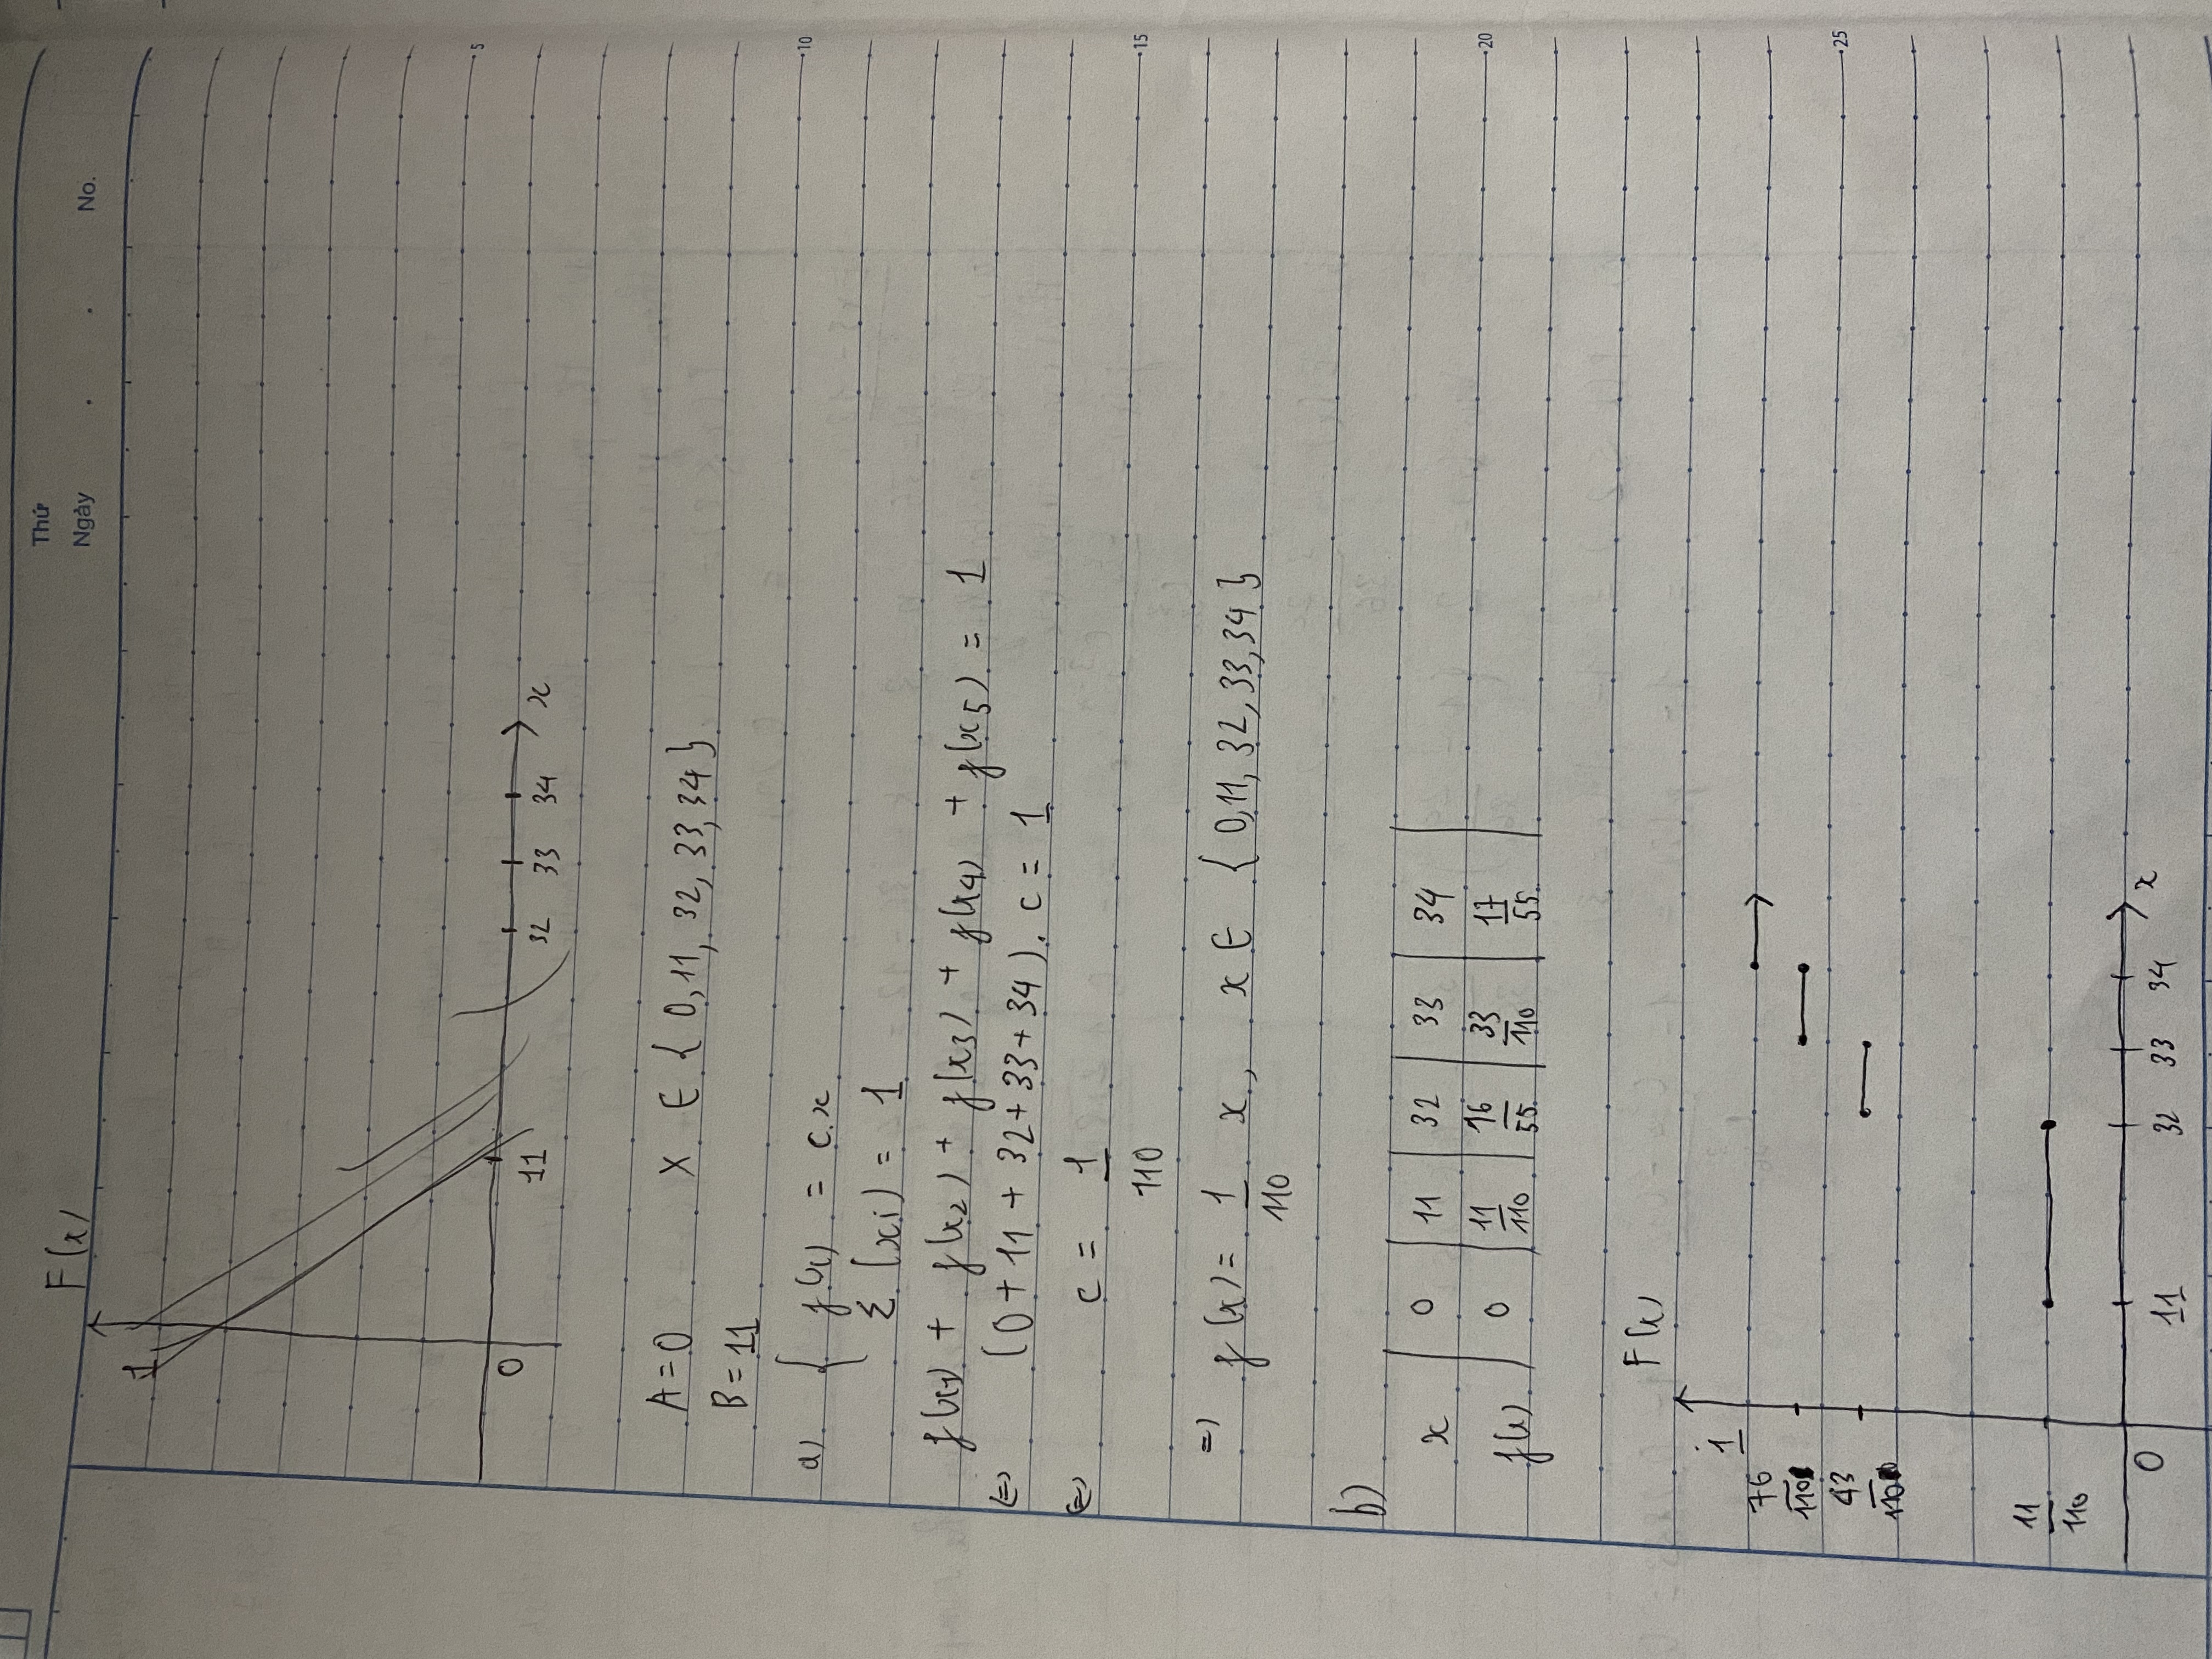 Thứ
Ngày . . No.
F(x)
1
0 11 32 33 34 x
5
A = 0 X ∈ { 0, 11, 32, 33, 34 }
B = 11
10
a) { f(x) = c.x
Σ (xi) = 1
f(x1) + f(x2) + f(x3) + f(x4) + f(x5) = 1
(=) (0 + 11 + 32 + 33 + 34). c = 1
(=) c = 1/110
15
=) f(x) = 1/110 x, x ∈ { 0, 11, 32, 33, 34 }
b)
x | 0 | 11 | 32 | 33 | 34
f(x) | 0 | 11/110 | 16/55 | 33/110 | 17/55
20
F(x)
1
76/110
43/110
25
11/110
0 11 32 33 34 x